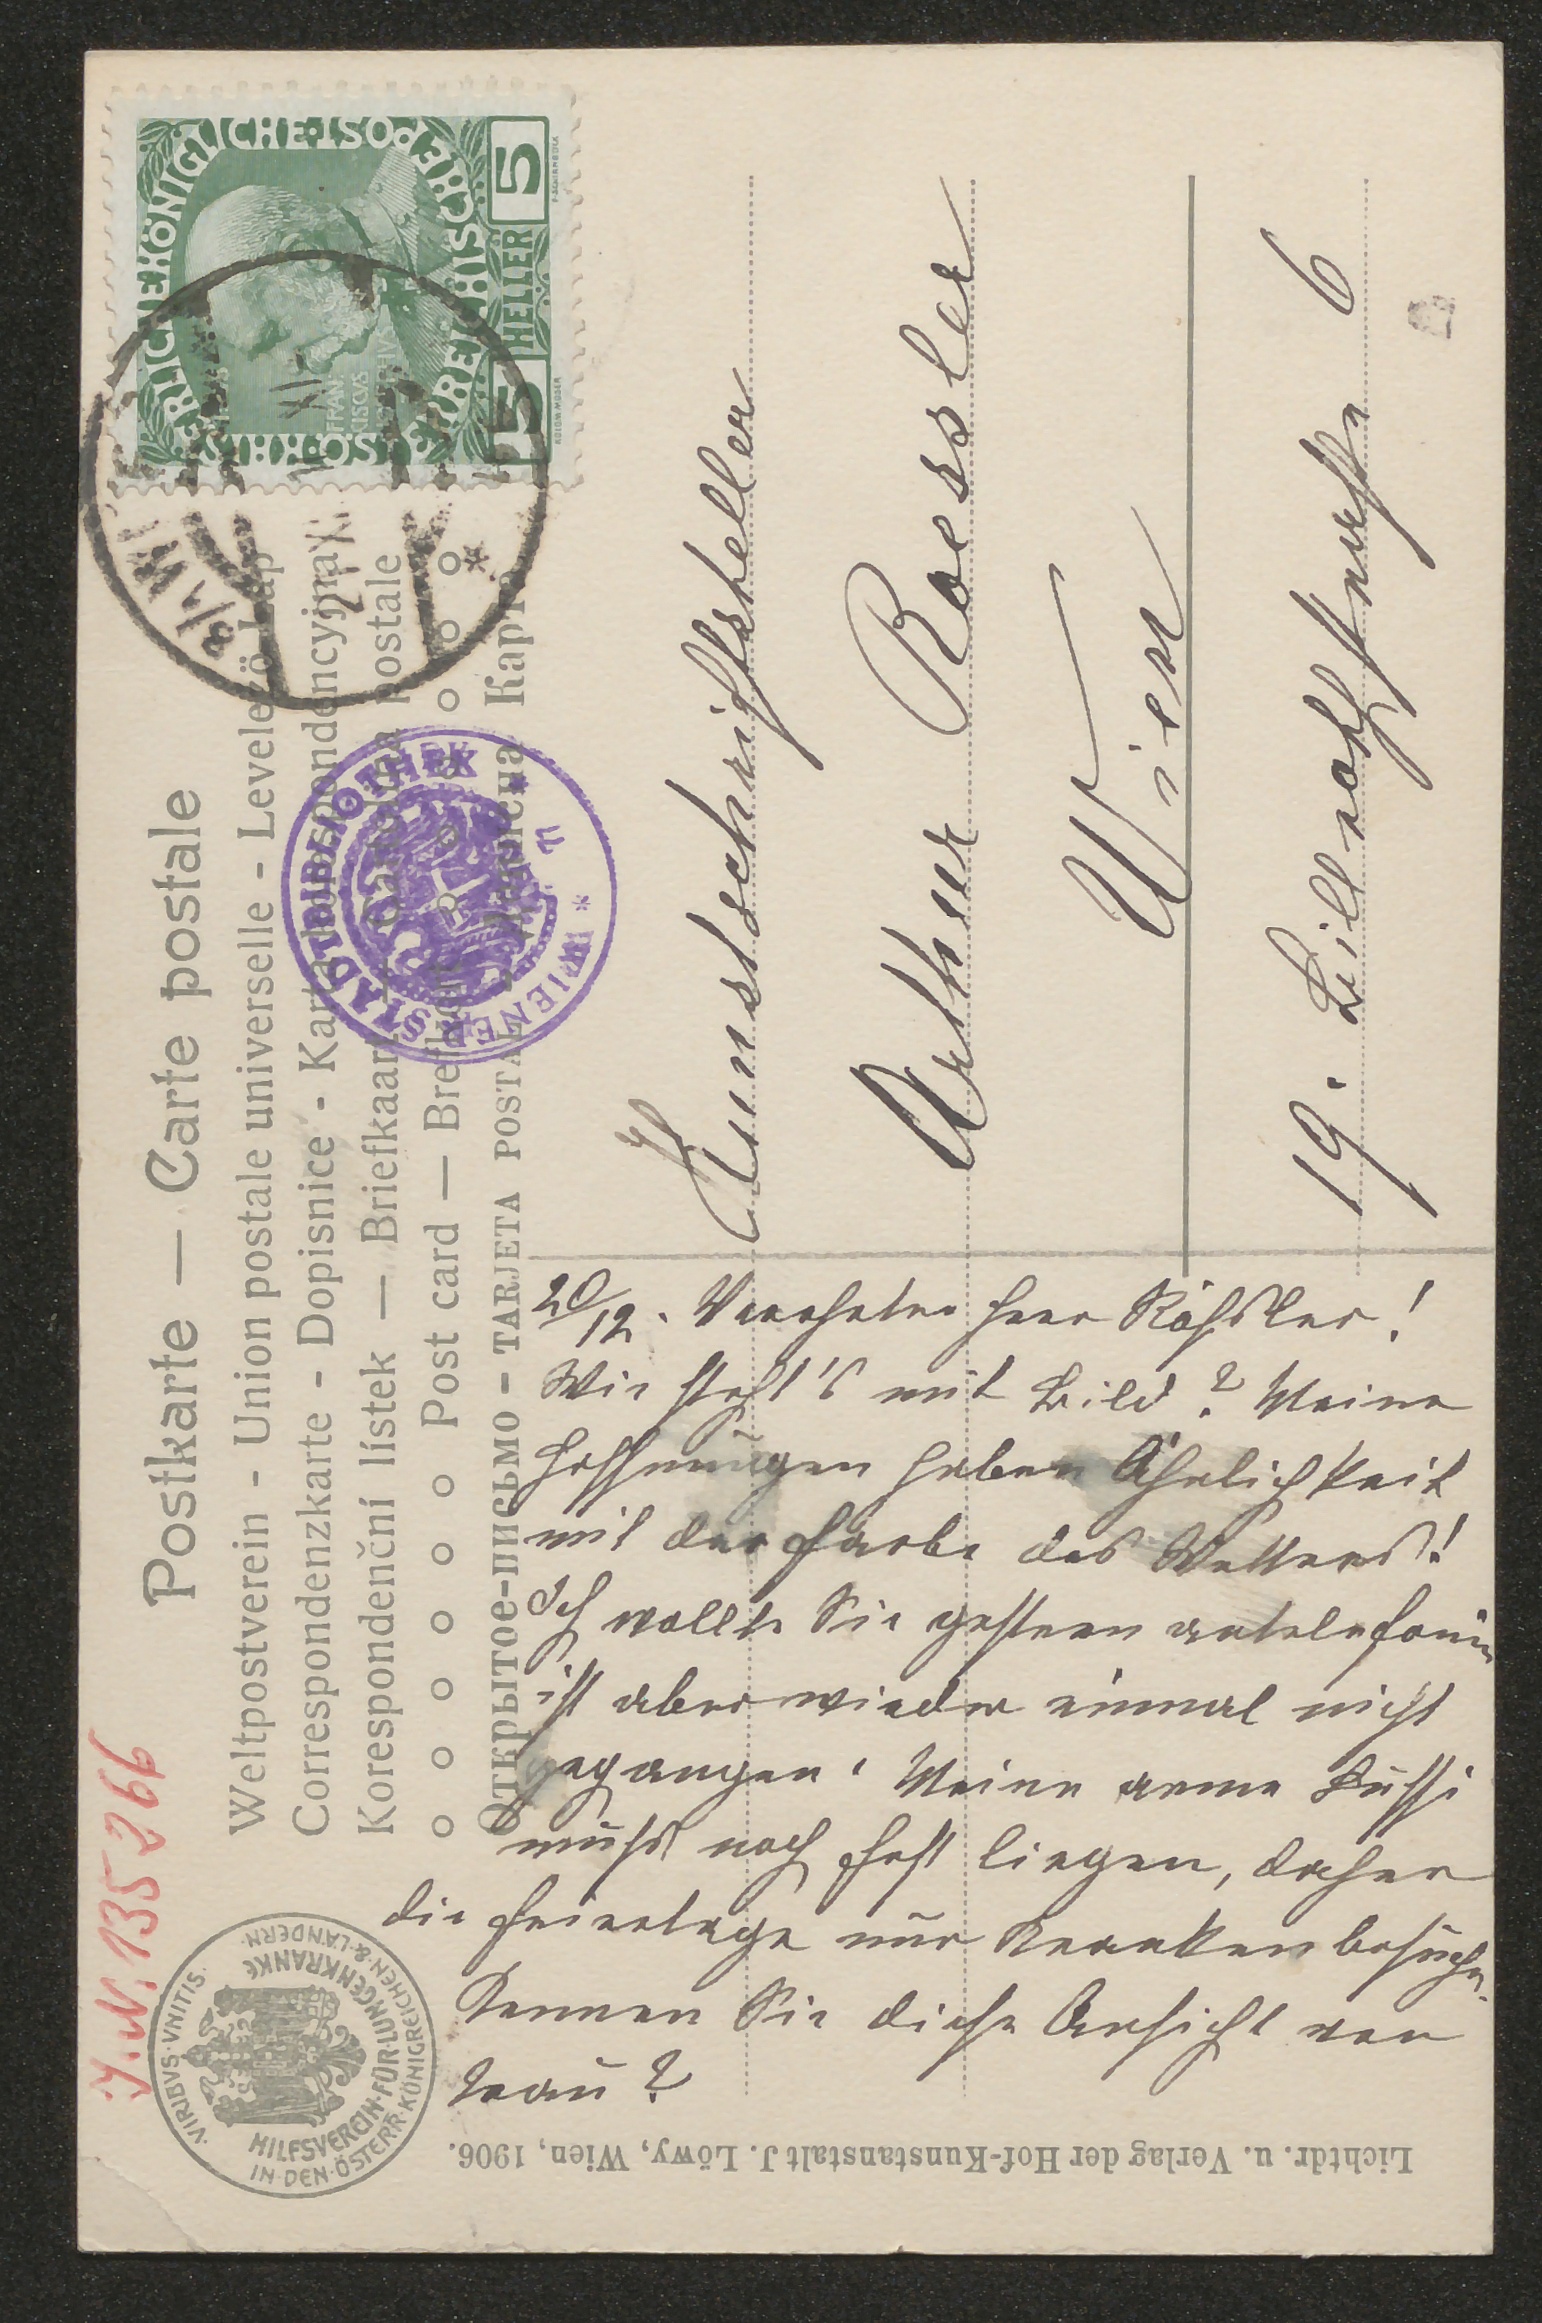 Postkarte — Carte postale
Weltpostverein - Union postale universelle - Levelező-Lap
Correspondenzkarte - Dopisnice - Karta korespondencyjna
Korespondenční lístek — Briefkaart — postale
Post card —
Открытое-письмо - TARJETA POSTAL - Карта
ÖSTERREICHISCHE POST
5 HELLER 5
FRAN
CISCVS
WIENER STADTBIBLIOTHEK
Kunstschriftsteller
Arthur Roessler
Wien
19. Billrothstraße 6
20/12. Verehrter Herr Rößler!
Wie steht's mit Bild? Meine
Hoffnungen haben Ähnlichkeit
mit der Farbe des Wetters!
Ich wollte Sie gestern antelefonieren
ist aber wieder einmal nicht
gegangen. Meine arme Bussi
muß noch fest liegen, daher
die Feiertage nur Krankenbesuche.
Kennen Sie diese Ansicht von
Trau?
J.N. 135266
VIRIBVS · VNITIS
HILFSVEREIN · FÜR · LUNGENKRANKE
IN · DEN · ÖSTERR · KÖNIGREICHEN · & · LÄNDERN
Lichtdr. u. Verlag der Hof-Kunstanstalt J. Löwy, Wien, 1906.